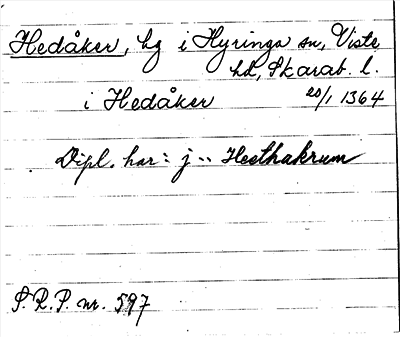 Hedåker, hg i Hyringa sn, Viste
hd, Skarab. l.
i Hedåker 20/1 1364
Dipl. har: j ‥ Hesthakrum
S. R. P. nr. 597